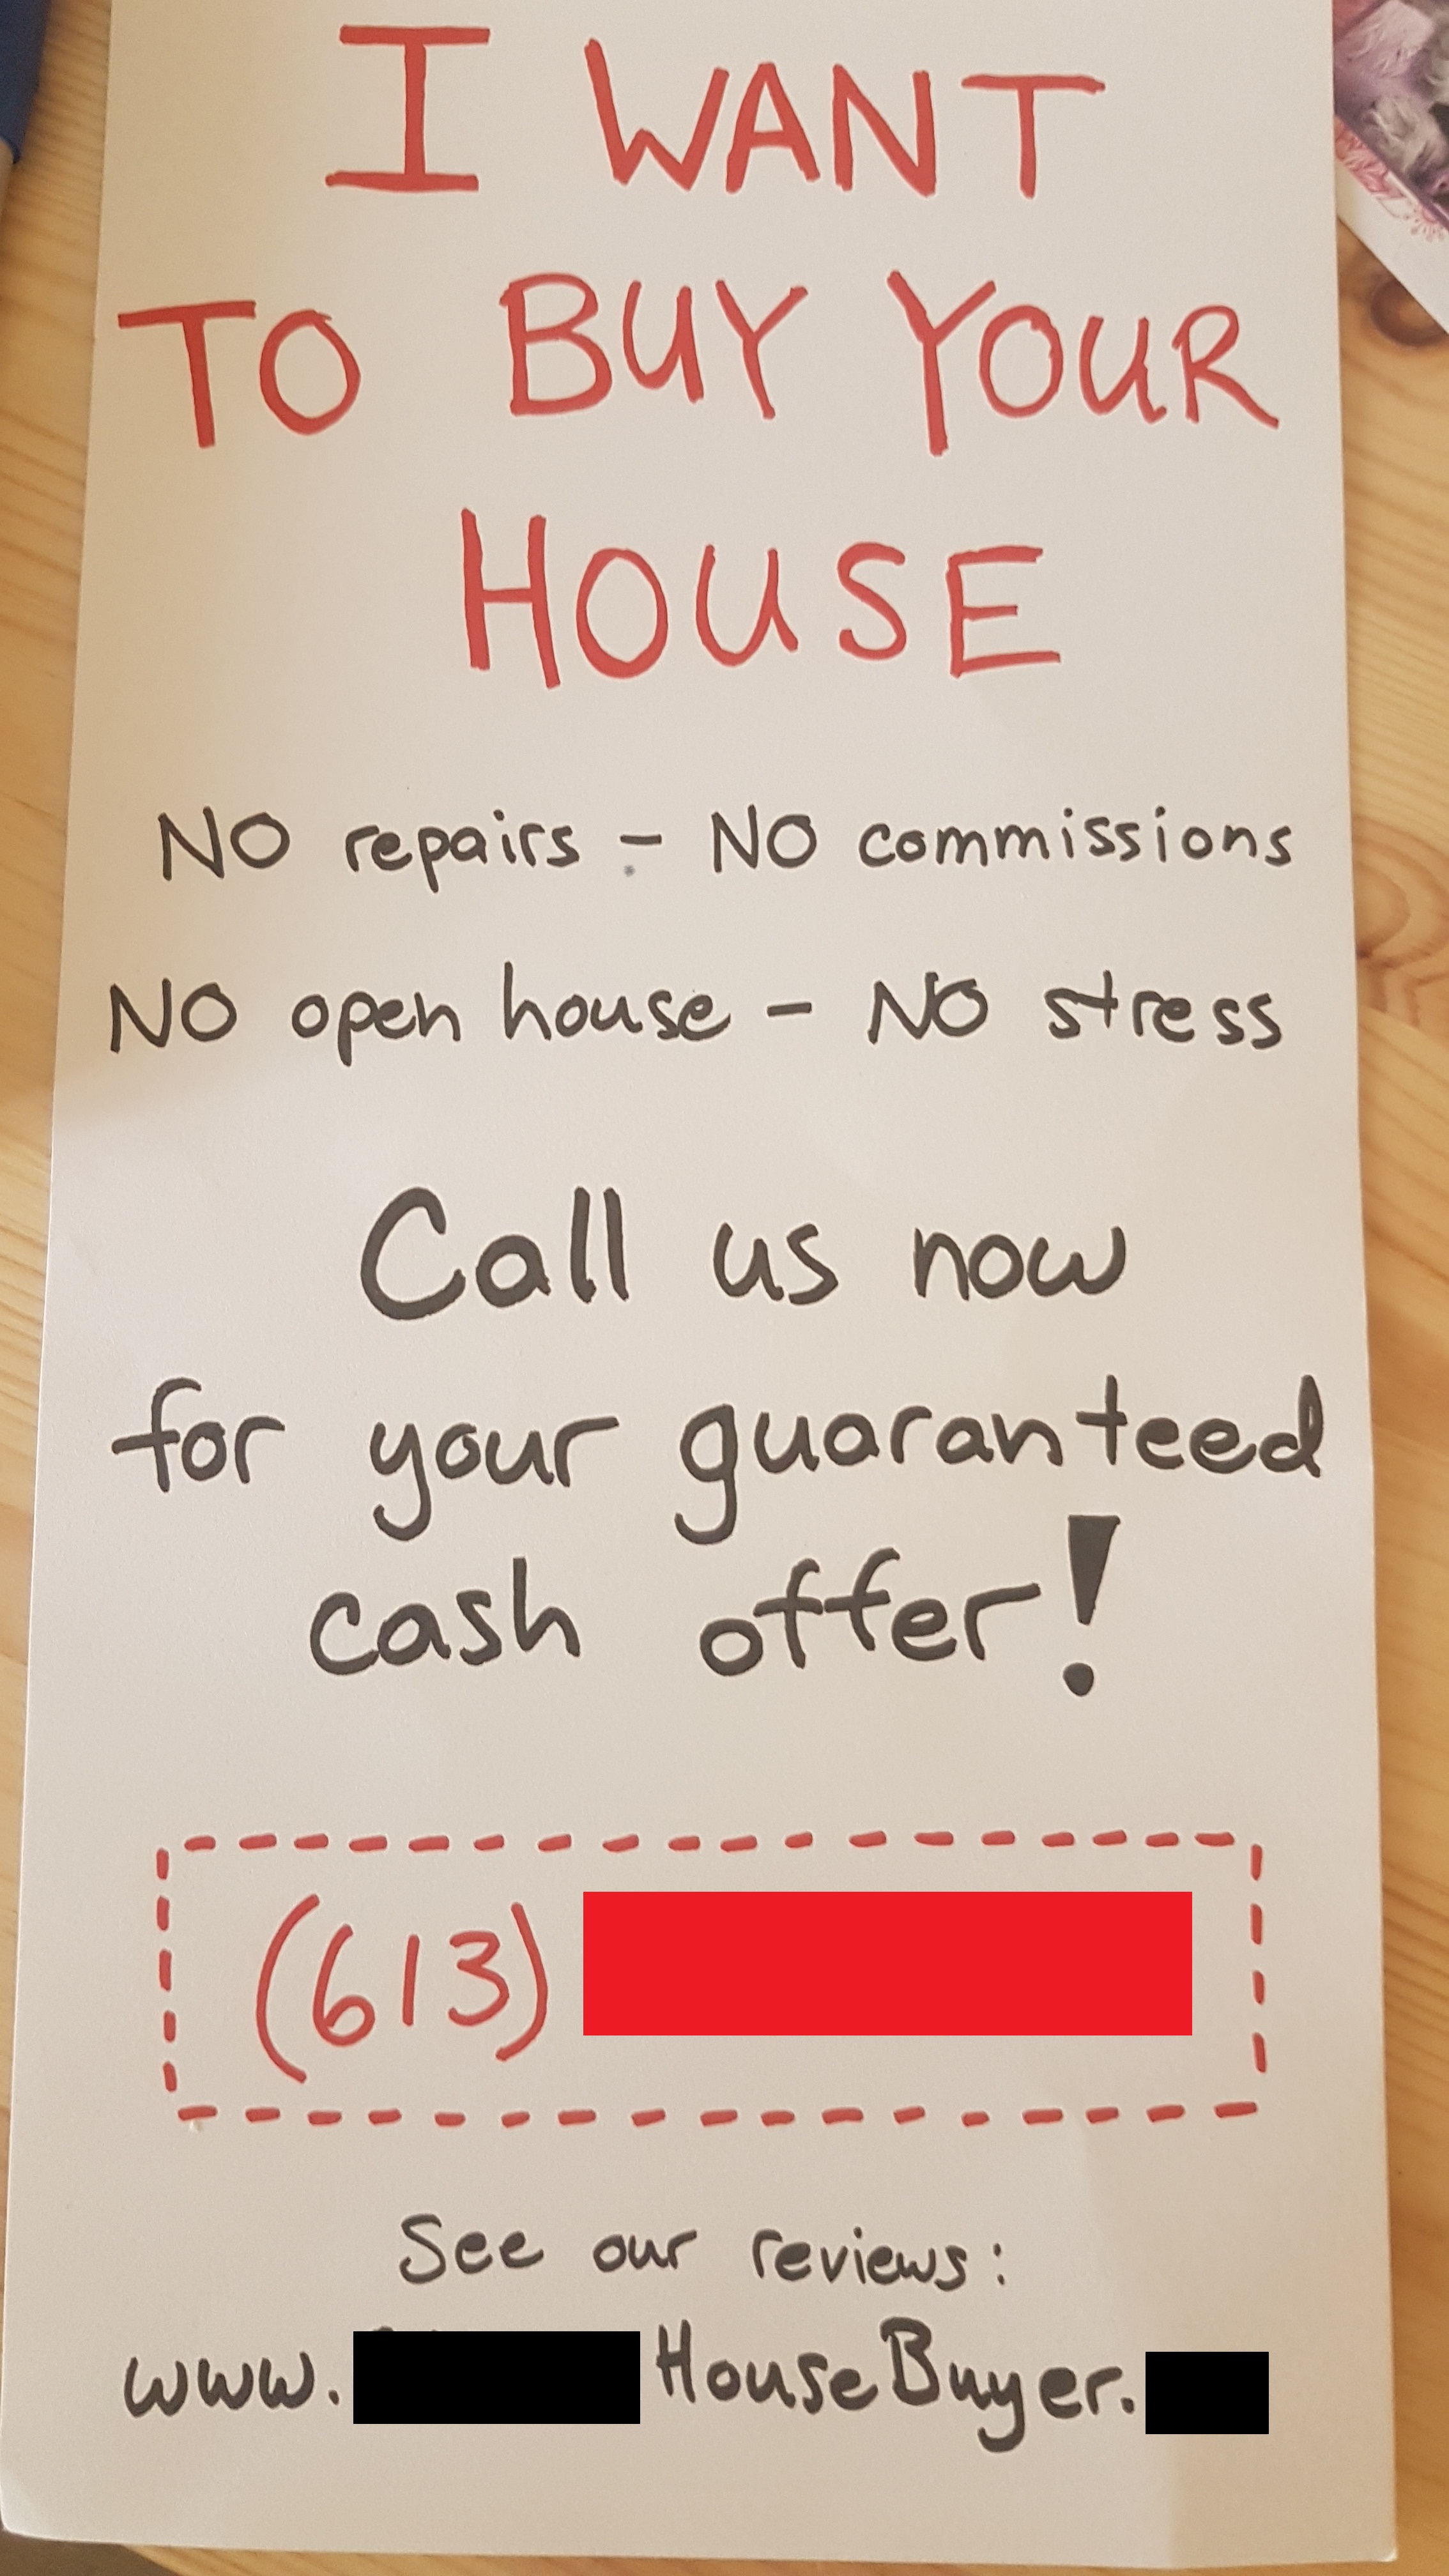 I WANT
TO BUY YOUR
HOUSE
NO repairs - NO commissions
NO open house - NO stress
Call us now
for your guaranteed
cash offer!
(613)
See our reviews:
www. HouseBuyer.